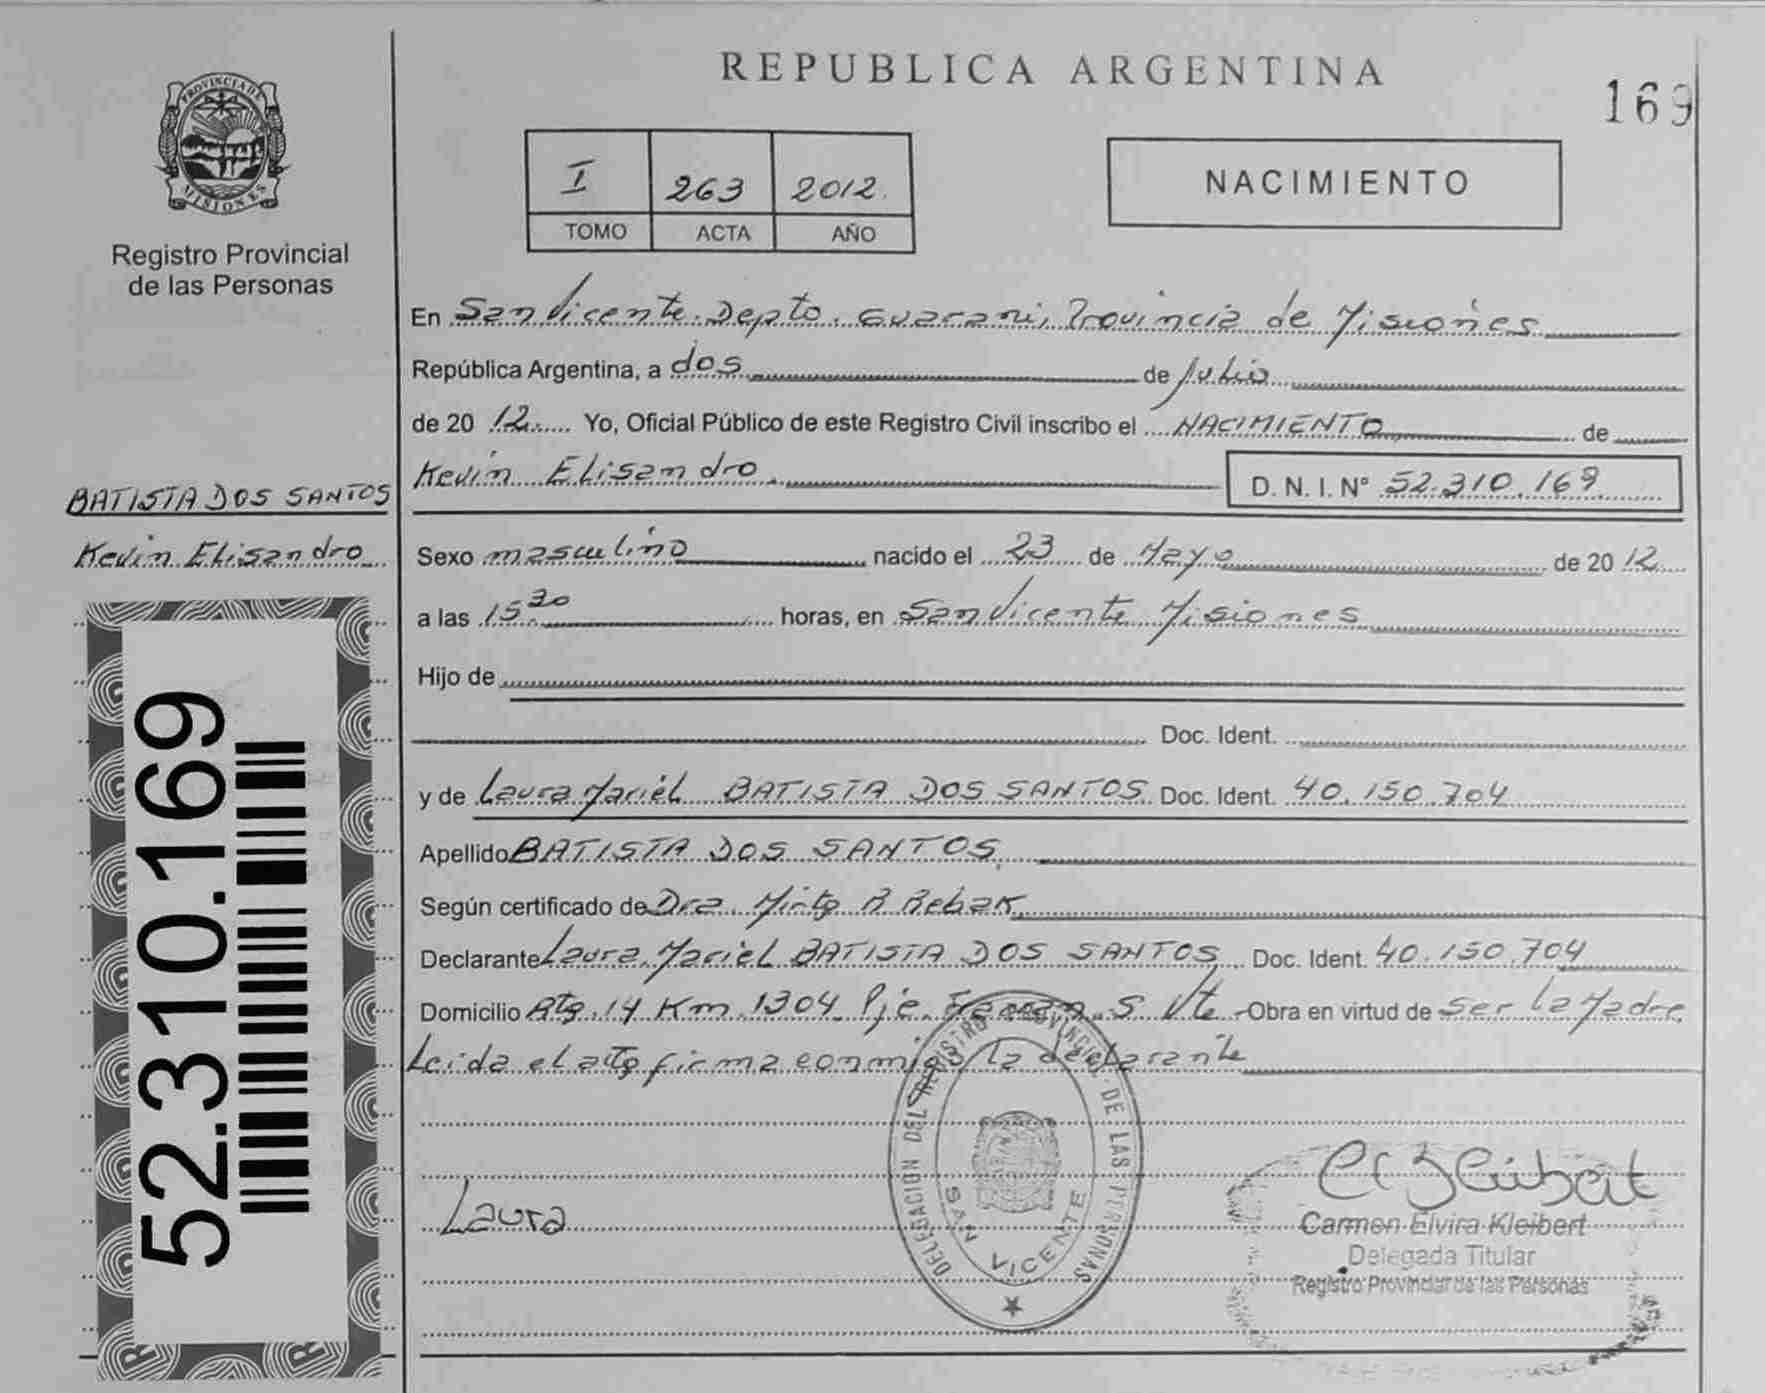 REPUBLICA ARGENTINA
169
PROVINCIA DE MISIONES
Registro Provincial
de las Personas
I 263 2012.
TOMO ACTA AÑO
NACIMIENTO
En San Vicente. Depto. Guarani, Provincia de Misiones
República Argentina, a dos de Julio
de 20 12 Yo, Oficial Público de este Registro Civil inscribo el NACIMIENTO de
Kevin Elisandro. D. N. I. N° 52.310.169
BATISTA DOS SANTOS
Kevin Elisandro
Sexo masculino nacido el 23 de Mayo de 20 12
a las 15.30 horas, en San Vicente Misiones
Hijo de
Doc. Ident.
y de Laura Mariel BATISTA DOS SANTOS Doc. Ident. 40.150.704
Apellido BATISTA DOS SANTOS.
Según certificado de Dra. Mirta R Rebak
Declarante Laura Mariel BATISTA DOS SANTOS Doc. Ident. 40.150.704
Domicilio Rta. 14 Km. 1304 Pje. S. Vte Obra en virtud de Ser la Madre
Leida el acta firma conmigo la declarante
52.310.169
Laura
DELEGACION DEL REGISTRO PROVINCIAL DE LAS PERSONAS
SAN VICENTE
Carmen Elvira Kleibert
Delegada Titular
Registro Provincial de las Personas